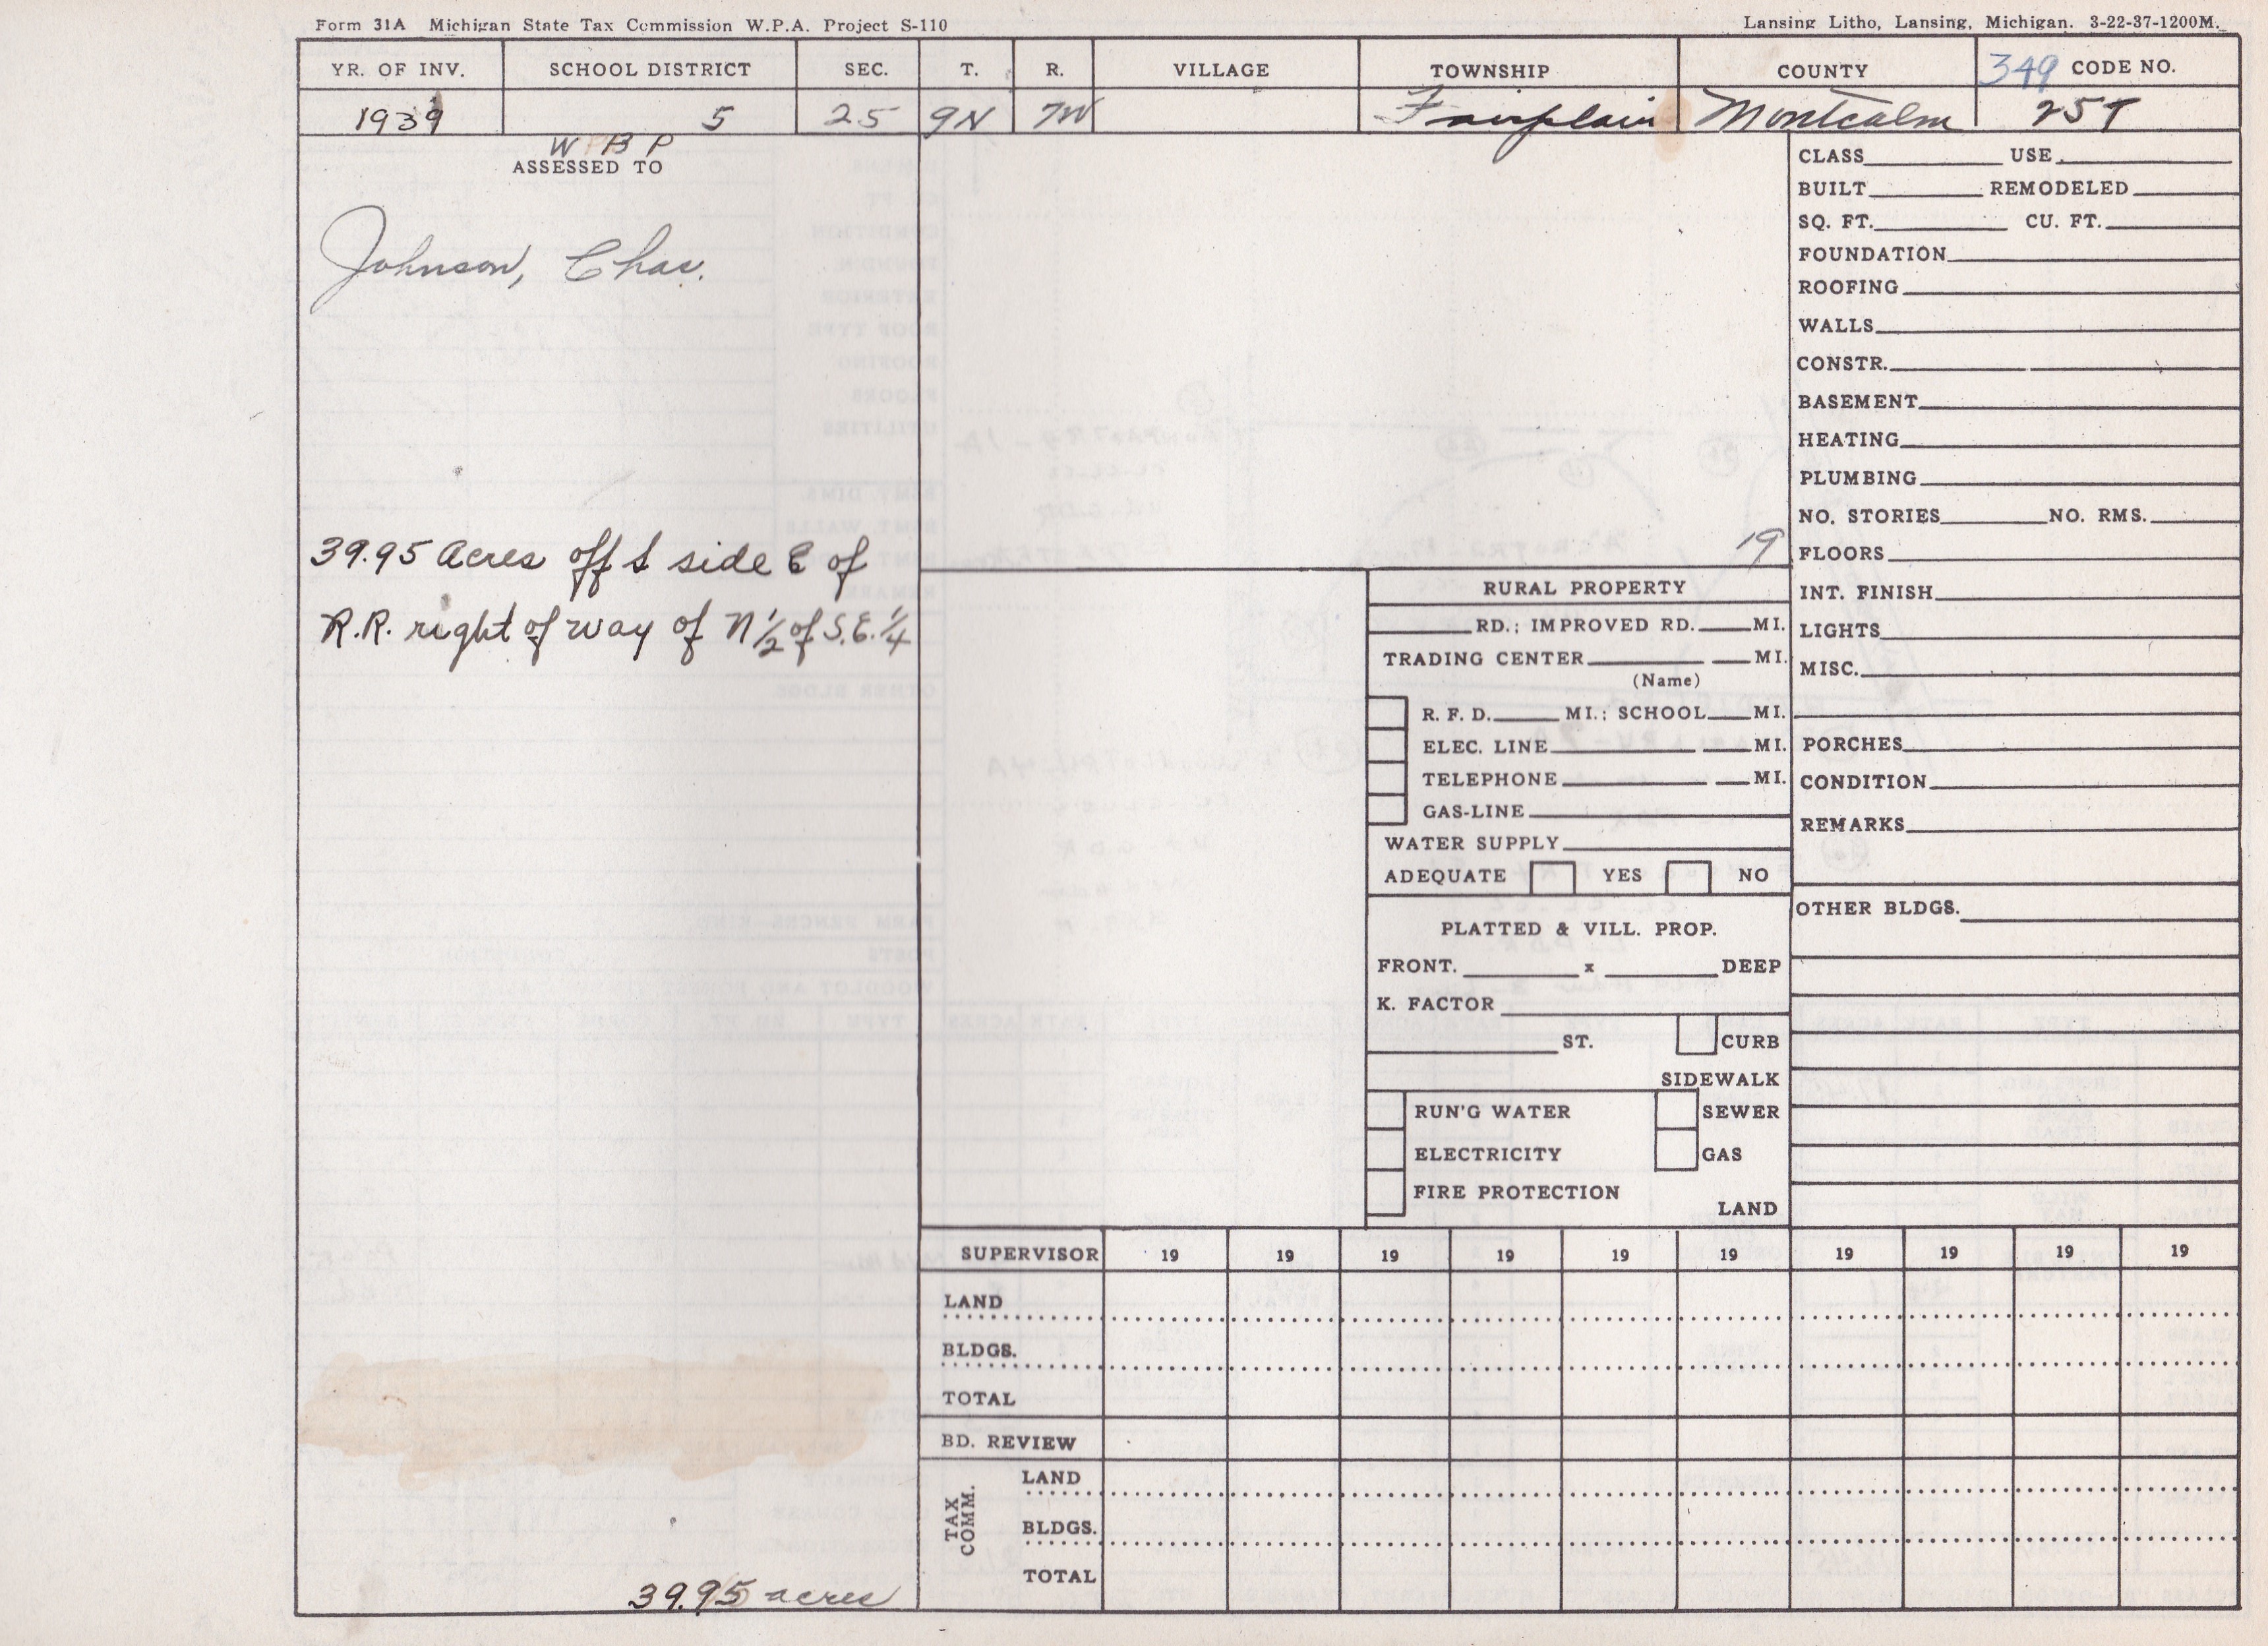 Form 31A Michigan State Tax Commission W.P.A. Project S-110
Lansing Litho, Lansing, Michigan. 3-22-37-1200M.
YR. OF INV. SCHOOL DISTRICT SEC. T. R. VILLAGE TOWNSHIP COUNTY 349 CODE NO.
1939 5 25 9N 7W Fairplain Montcalm
W P B P
ASSESSED TO
Johnson, Chas.
39.95 Acres off S side E of
R.R. right of way of N 1/2 of S.E. 1/4
39.95 acres
19
RURAL PROPERTY
RD.; IMPROVED RD. MI.
TRADING CENTER MI.
(Name)
R. F. D. MI.; SCHOOL MI.
ELEC. LINE MI.
TELEPHONE MI.
GAS-LINE
WATER SUPPLY
ADEQUATE YES NO
PLATTED & VILL. PROP.
FRONT. x DEEP
K. FACTOR
ST. CURB
SIDEWALK
RUN'G WATER SEWER
ELECTRICITY GAS
FIRE PROTECTION
LAND
CLASS USE
BUILT REMODELED
SQ. FT. CU. FT.
FOUNDATION
ROOFING
WALLS
CONSTR.
BASEMENT
HEATING
PLUMBING
NO. STORIES NO. RMS.
FLOORS
INT. FINISH
LIGHTS
MISC.
PORCHES
CONDITION
REMARKS
OTHER BLDGS.
SUPERVISOR 19 19 19 19 19 19 19 19 19 19
LAND
BLDGS.
TOTAL
BD. REVIEW
TAX COMM.
LAND
BLDGS.
TOTAL